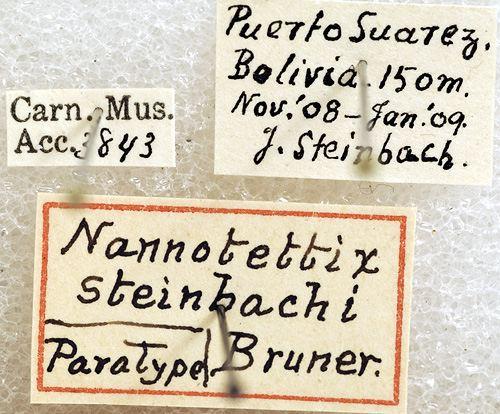 Puerto Suarez.
Bolivia. 150m.
Nov.'08-Jan.'09.
J. Steinbach.
Carn. Mus.
Acc. 3843
Nannotettix
steinbachi
Paratype Bruner.